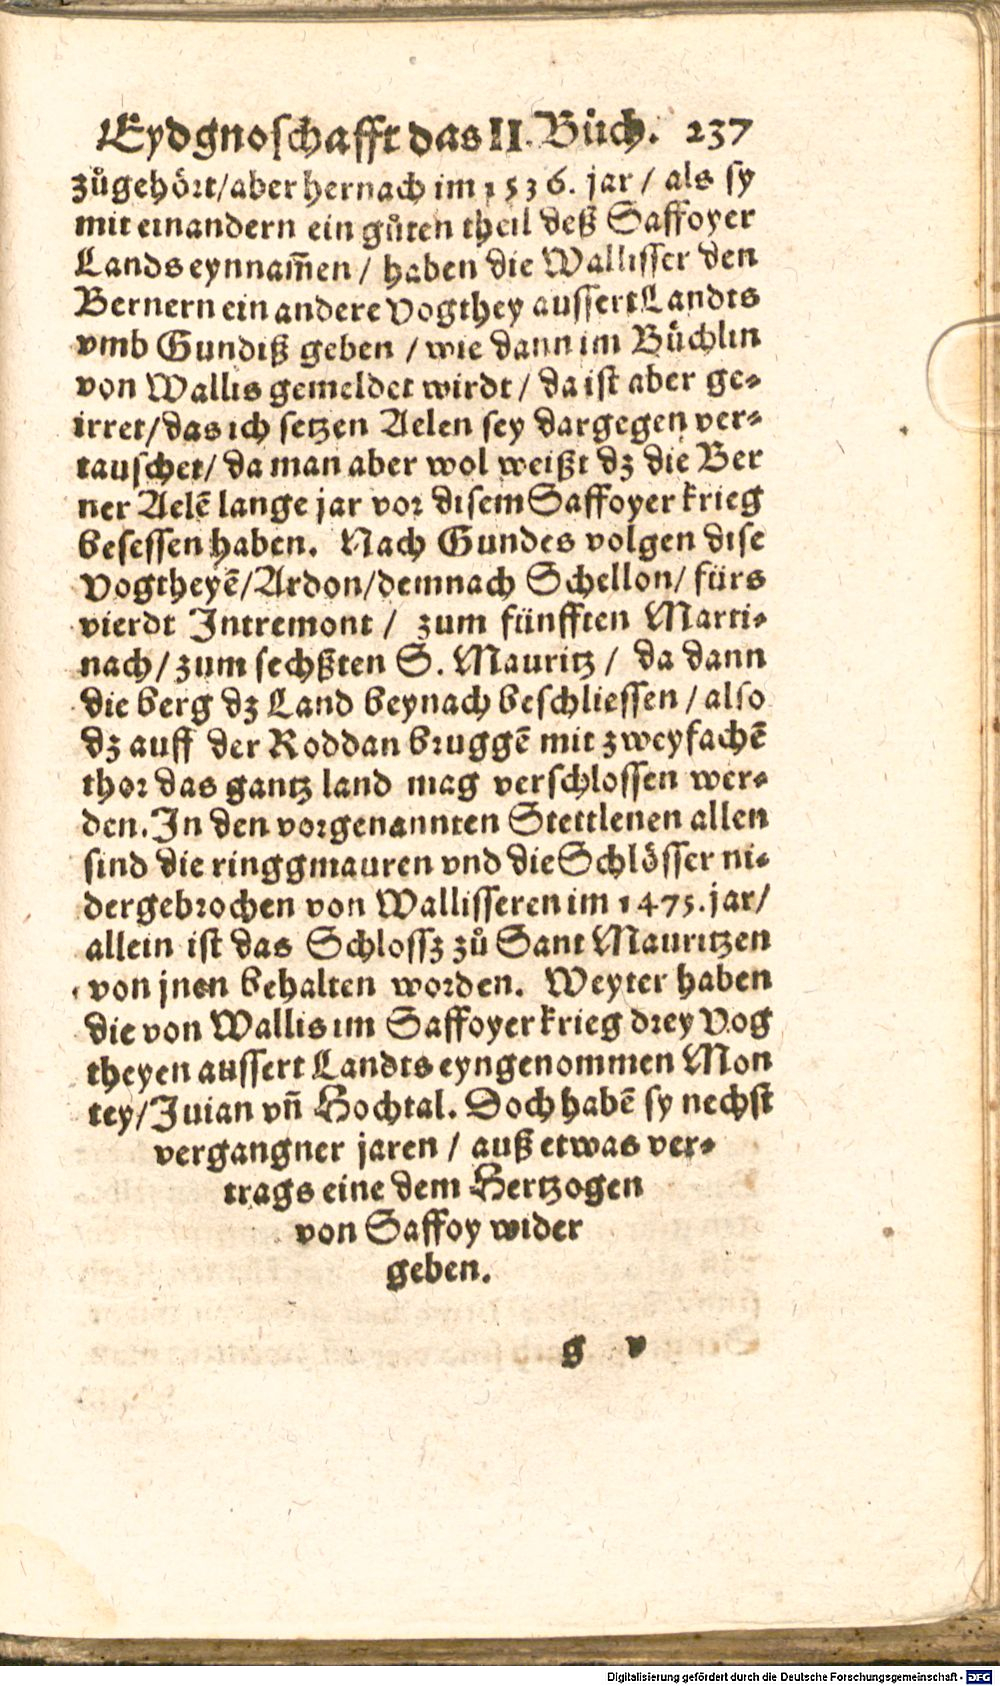 Eydgnoschafft das II. Buͤch. 237
zůgehoͤrt/ aber hernach im 1536. jar / als sy
mit einandern ein gůten theil deß Saffoyer
Lands eynnam̃en / haben die Wallisser den
Bernern ein andere Vogthey aussert Landts
vmb Gundiß geben / wie dann im Buͤchlin
von Wallis gemeldet wirdt / da ist aber ge-
irret/ das ich setzen Aelen sey dargegen ver-
tauschet/ da man aber wol weißt dz die Ber
ner Aelẽ lange jar vor disem Saffoyer krieg
besessen haben. Nach Gundes volgen dise
Vogtheyẽ/ Ardon/ demnach Schellon/ fürs
vierdt Intremont / zum fünfften Marti-
nach/ zum sechßten S. Mauritz / da dann
die berg dz Land beynach beschliessen / also
dz auff der Roddan bruggẽ mit zweyfachẽ
thor das gantz land mag verschlossen wer-
den. In den vorgenannten Stettlenen allen
sind die ringgmauren vnd die Schlösser ni-
dergebrochen von Wallisseren im 1475. jar/
allein ist das Schlossz zů Sant Mauritzen
von jnen behalten worden. Weyter haben
die von Wallis im Saffoyer krieg drey Vog
theyen aussert Landts eyngenommen Mon
tey/ Iuian vñ Hochtal. Doch habẽ sy nechst
vergangner jaren / auß etwas ver-
trags eine dem Hertzogen
von Saffoy wider
geben.
g v
Digitalisierung gefördert durch die Deutsche Forschungsgemeinschaft - DFG